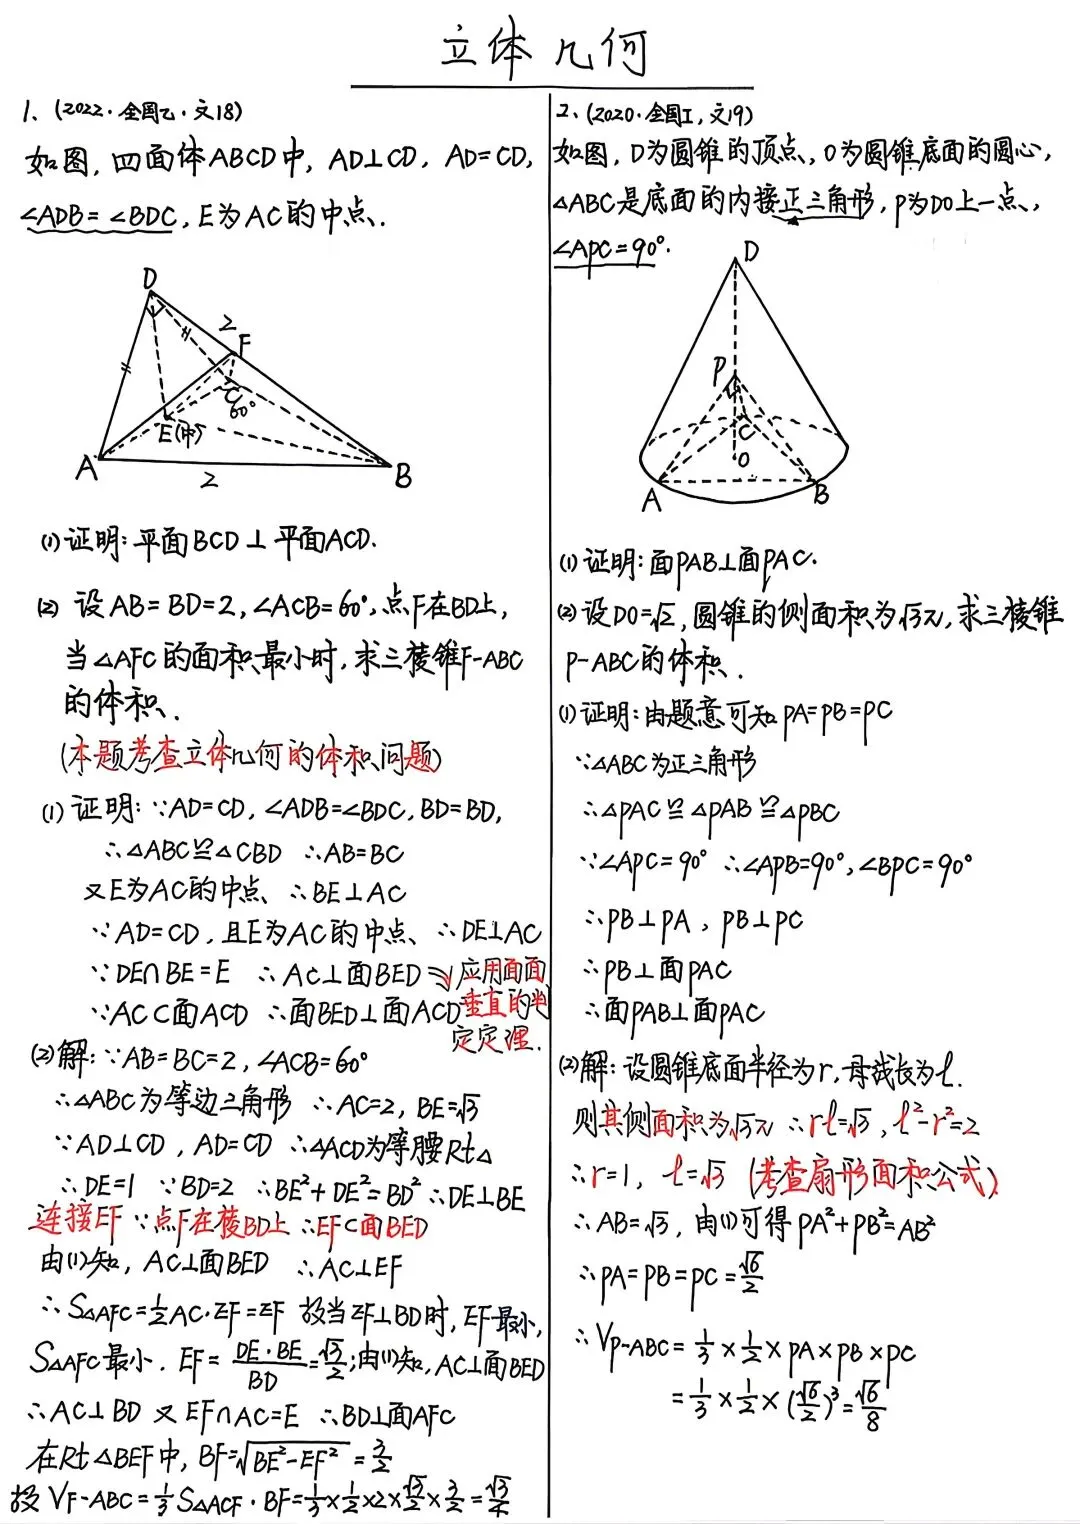 立体几何
1、(2022·全国乙·文18)
如图,四面体ABCD中,AD⊥CD,AD=CD,
∠ADB=∠BDC,E为AC的中点.
D
2
F
C
60°
E(中)
A
B
2
(1)证明:平面BCD⊥平面ACD.
(2) 设AB=BD=2,∠ACB=60°,点F在BD上,
当△AFC的面积最小时,求三棱锥F-ABC
的体积.
(本题考查立体几何的体积问题)
(1) 证明:∵AD=CD,∠ADB=∠BDC,BD=BD,
∴△ABC≌△CBD ∴AB=BC
又E为AC的中点、∴BE⊥AC
∵AD=CD,且E为AC的中点、∴DE⊥AC
∵DE∩BE=E ∴AC⊥面BED→应用面面
∵AC⊂面ACD ∴面BED⊥面ACD 垂直的判
定定理.
(2)解:∵AB=BC=2,∠ACB=60°
∴△ABC为等边三角形 ∴AC=2,BE=√3
∵AD⊥CD,AD=CD ∴△ACD为等腰Rt△
∴DE=1 ∵BD=2 ∴BE²+DE²=BD² ∴DE⊥BE
连接EF ∵点F在棱BD上 ∴EF⊂面BED
由(1)知,AC⊥面BED ∴AC⊥EF
∴S△AFC=1/2AC·EF=EF 故当EF⊥BD时,EF最小,
S△AFC最小. EF=DE·BE/BD=√3/2;由(1)知,AC⊥面BED
∴AC⊥BD 又EF∩AC=E ∴BD⊥面AFC
在Rt△BEF中,BF=√(BE²-EF²)=3/2
故VF-ABC=1/3S△ACF·BF=1/3×1/2×2×√3/2×3/2=√3/4
2、(2020·全国I,文19)
如图,D为圆锥的顶点,O为圆锥底面的圆心,
△ABC是底面的内接正三角形,P为DO上一点,
∠APC=90°.
D
P
C
O
A
B
(1)证明:面PAB⊥面PAC.
(2)设DO=√2,圆锥的侧面积为√3π,求三棱锥
P-ABC的体积.
(1)证明:由题意可知PA=PB=PC
∵△ABC为正三角形
∴△PAC≌△PAB≌△PBC
∵∠APC=90° ∴∠APB=90°,∠BPC=90°
∴PB⊥PA,PB⊥PC
∴PB⊥面PAC
∴面PAB⊥面PAC
(2)解:设圆锥底面半径为r,母线长为l.
则其侧面积为√3π ∴rl=√3,l²-r²=2
∴r=1,l=√3 (考查扇形面积公式)
∴AB=√3,由(1)可得PA²+PB²=AB²
∴PA=PB=PC=√6/2
∴VP-ABC=1/3×1/2×PA×PB×PC
=1/3×1/2×(√6/2)³=√6/8